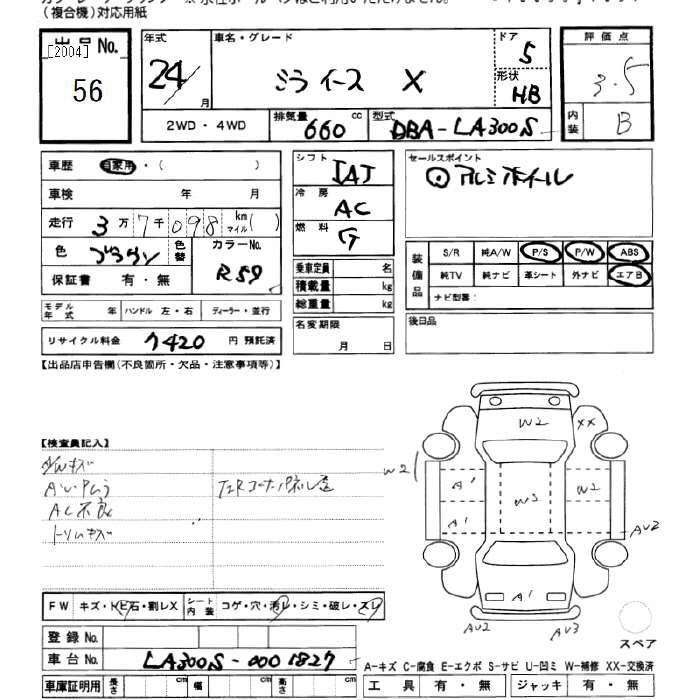 （複合機）対応用紙
出品No.
[2004]
56
年式
24/
月
車名・グレード
ミライース X
ドア
5
形状
HB
評価点
3.5
内装
B
2WD・4WD
排気量
660
cc
型式
DBA-LA300S
車歴
自家用・(　　　)
車検　　年　　月
走行
3万7千098
km
マイル( )
色
ブラウン
色替
カラーNo.
R59
保証書　有・無
モデル年式　年
ハンドル　左・右
ディーラー・並行
リサイクル料金
7420
円 預託済
シフト
IAT
冷房
AC
燃料
G
乗車定員　名
積載量　kg
総重量　kg
名変期限
月　日
セールスポイント
⊙ アルミホイール
装備品
S/R
純A/W
P/S
P/W
ABS
純TV
純ナビ
革シート
外ナビ
エアB
ナビ型番：
後日品
【出品店申告欄(不良箇所・欠品・注意事項等)】
【検査員記入】
AC不良
トリムキズ
W2
XX
W2
A1
W3
W2
A1
AU2
A1
AU2
AU3
スペア
FW
キズ・トビ石・割レX
シート内装
コゲ・穴・汚レ・シミ・破レ・スレ
登録 No.
車台 No.
LA300S-0001827
車庫証明用
長さ
cm
幅
cm
高さ
cm
A-キズ C-腐食 E-エクボ S-サビ U-凹ミ W-補修 XX-交換済
工具　有・無
ジャッキ　有・無